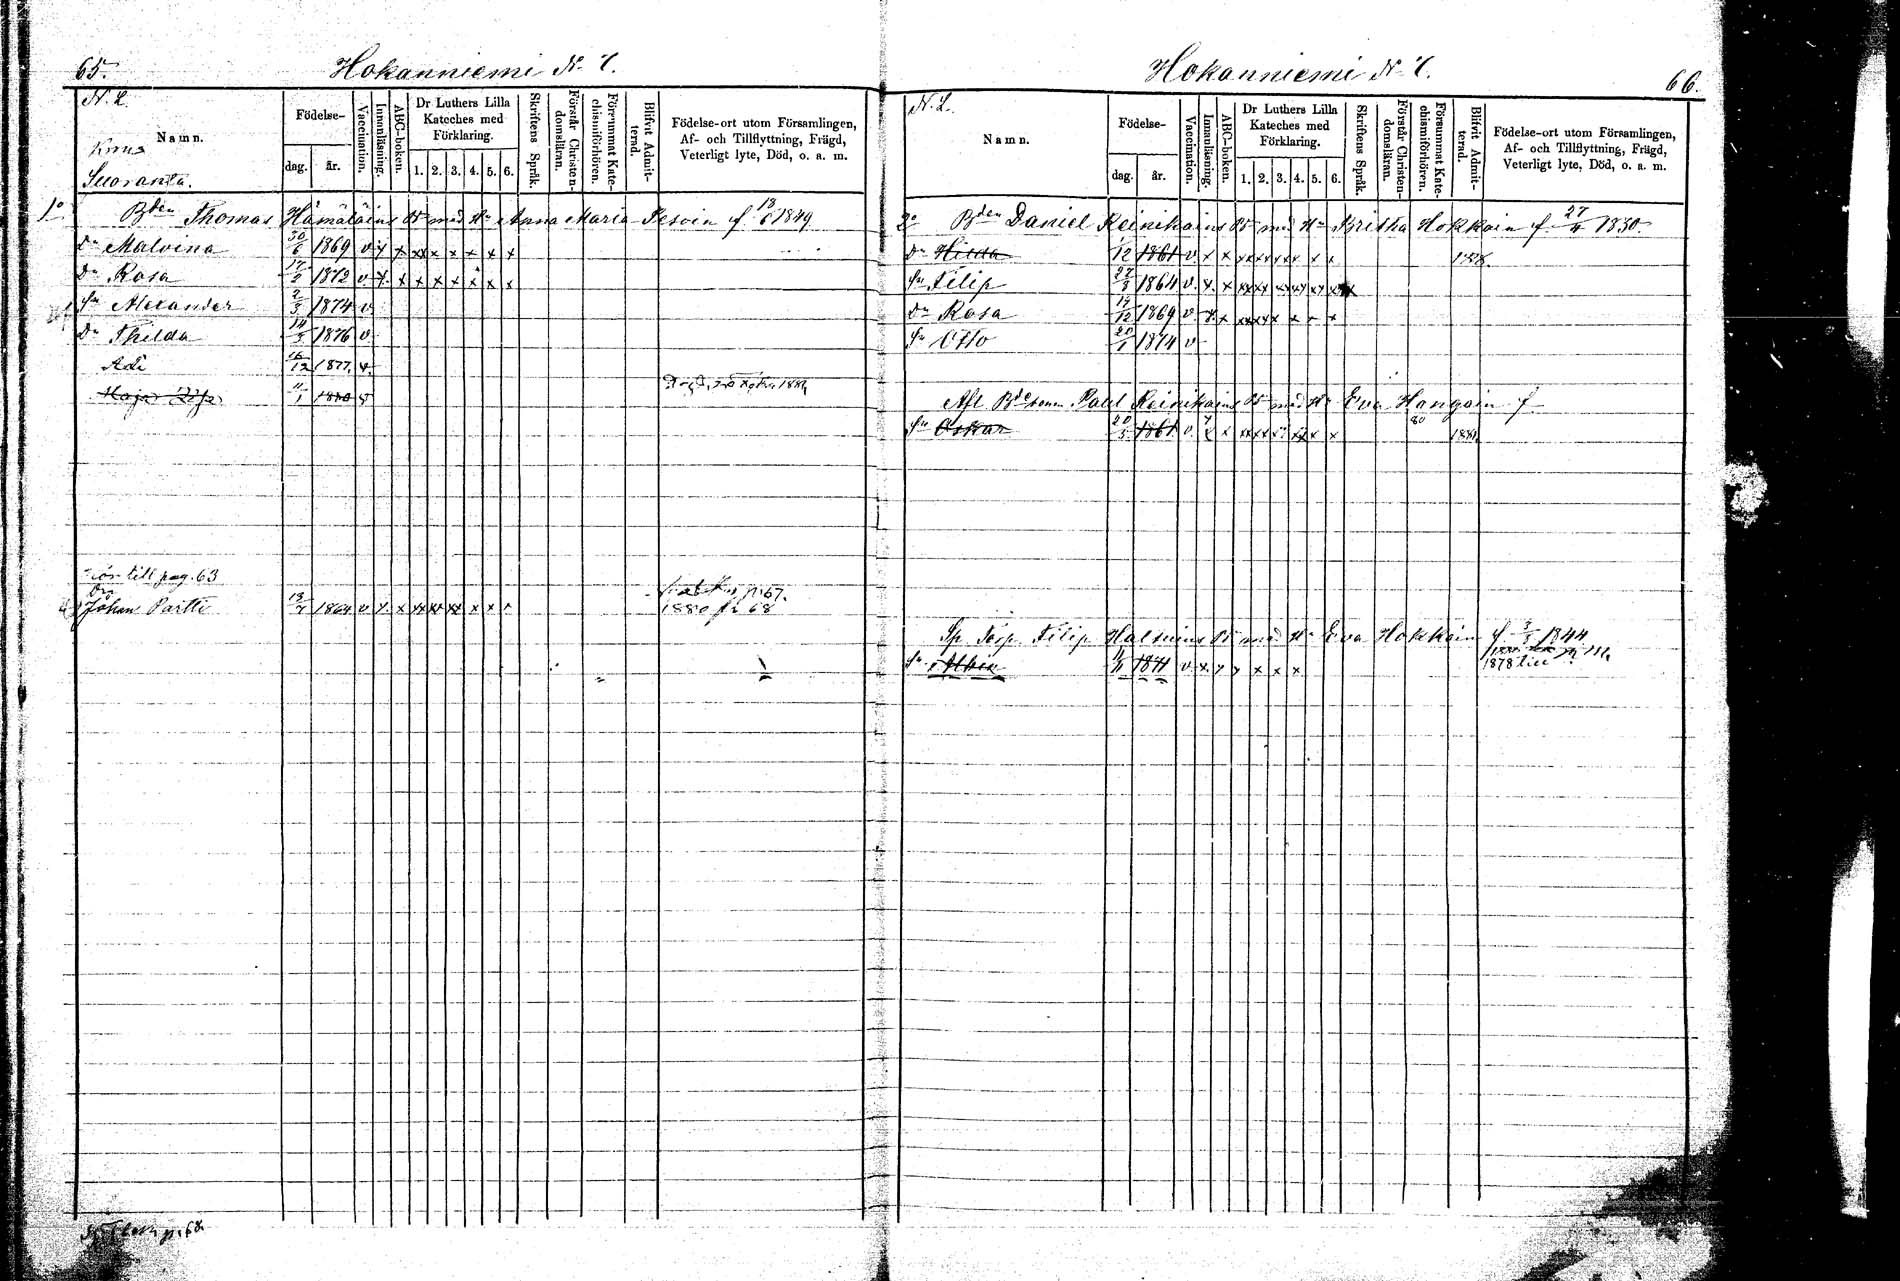 65.
Hokanniemi No 7.
N. L.
Namn.
Födelse-
dag.
år.
Vaccination.
Innanläsning.
ABC-boken.
Dr Luthers Lilla
Kateches med
Förklaring.
1. 2. 3. 4. 5. 6.
Skriftens Språk.
Förstår Christen-
domsläran.
Försummat Kate-
chismiförhören.
Blifvit Admit-
terad.
Födelse-ort utom Församlingen,
Af- och Tillflyttning, Frägd,
Veterligt lyte, Död, o. a. m.
Suoranta.
1o Bden Thomas Hämäläins Br med Hu Anna Maria Pesoin f 13/6 1849
Dr Malvina 30/6 1869 v x x xx x x x x x
Dr Rosa 17/2 1872 v x x x x x x x x
Sn Alexander 2/3 1874 v
Dr Thilda 14/3 1876 v
Adi 16/12 1877 v
11/1 1880 v
till pag. 63
Johan Partti 13/7 1864 v x x xx xx xx x x x
p. 67.
1880 p. 68
66.
Hokanniemi No 7.
N. L.
Namn.
Födelse-
dag.
år.
Vaccination.
Innanläsning.
ABC-boken.
Dr Luthers Lilla
Kateches med
Förklaring.
1. 2. 3. 4. 5. 6.
Skriftens Språk.
Förstår Christen-
domsläran.
Försummat Kate-
chismiförhören.
Blifvit Admit-
terad.
Födelse-ort utom Församlingen,
Af- och Tillflyttning, Frägd,
Veterligt lyte, Död, o. a. m.
2o Bden Daniel Reinikains Br med Hu Britha Hokkain f 27/4 1830
Dr Hilda 1861 v x x xx xx xx x x x
Sn Filip 27/3 1864 v x x xx xx xx xx xx
Dr Rosa 17/12 1869 v x x xx xx x x x x
Sn Otto 20/1 1874 v
Afl Bdesonn Paul Reinikains Br med Hu Eva Hangoin f
Sn Oskar 20/5 1861 v x x xx xx x 80 1881
Sp Torp. Filip Halsuins Br med Hu Eva Hokkain f 3/3 1844
Sn Albin 1871 v x x x x x x
1878 till